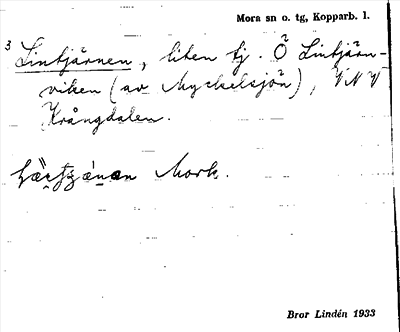 Mora sn o. tg, Kopparb. l.
3
Lintjärnen, liten tj. Ö Lintjärn-
viken (av Myckelsjön), VNV
Krångdalen.
Mork.
Bror Lindén 1933